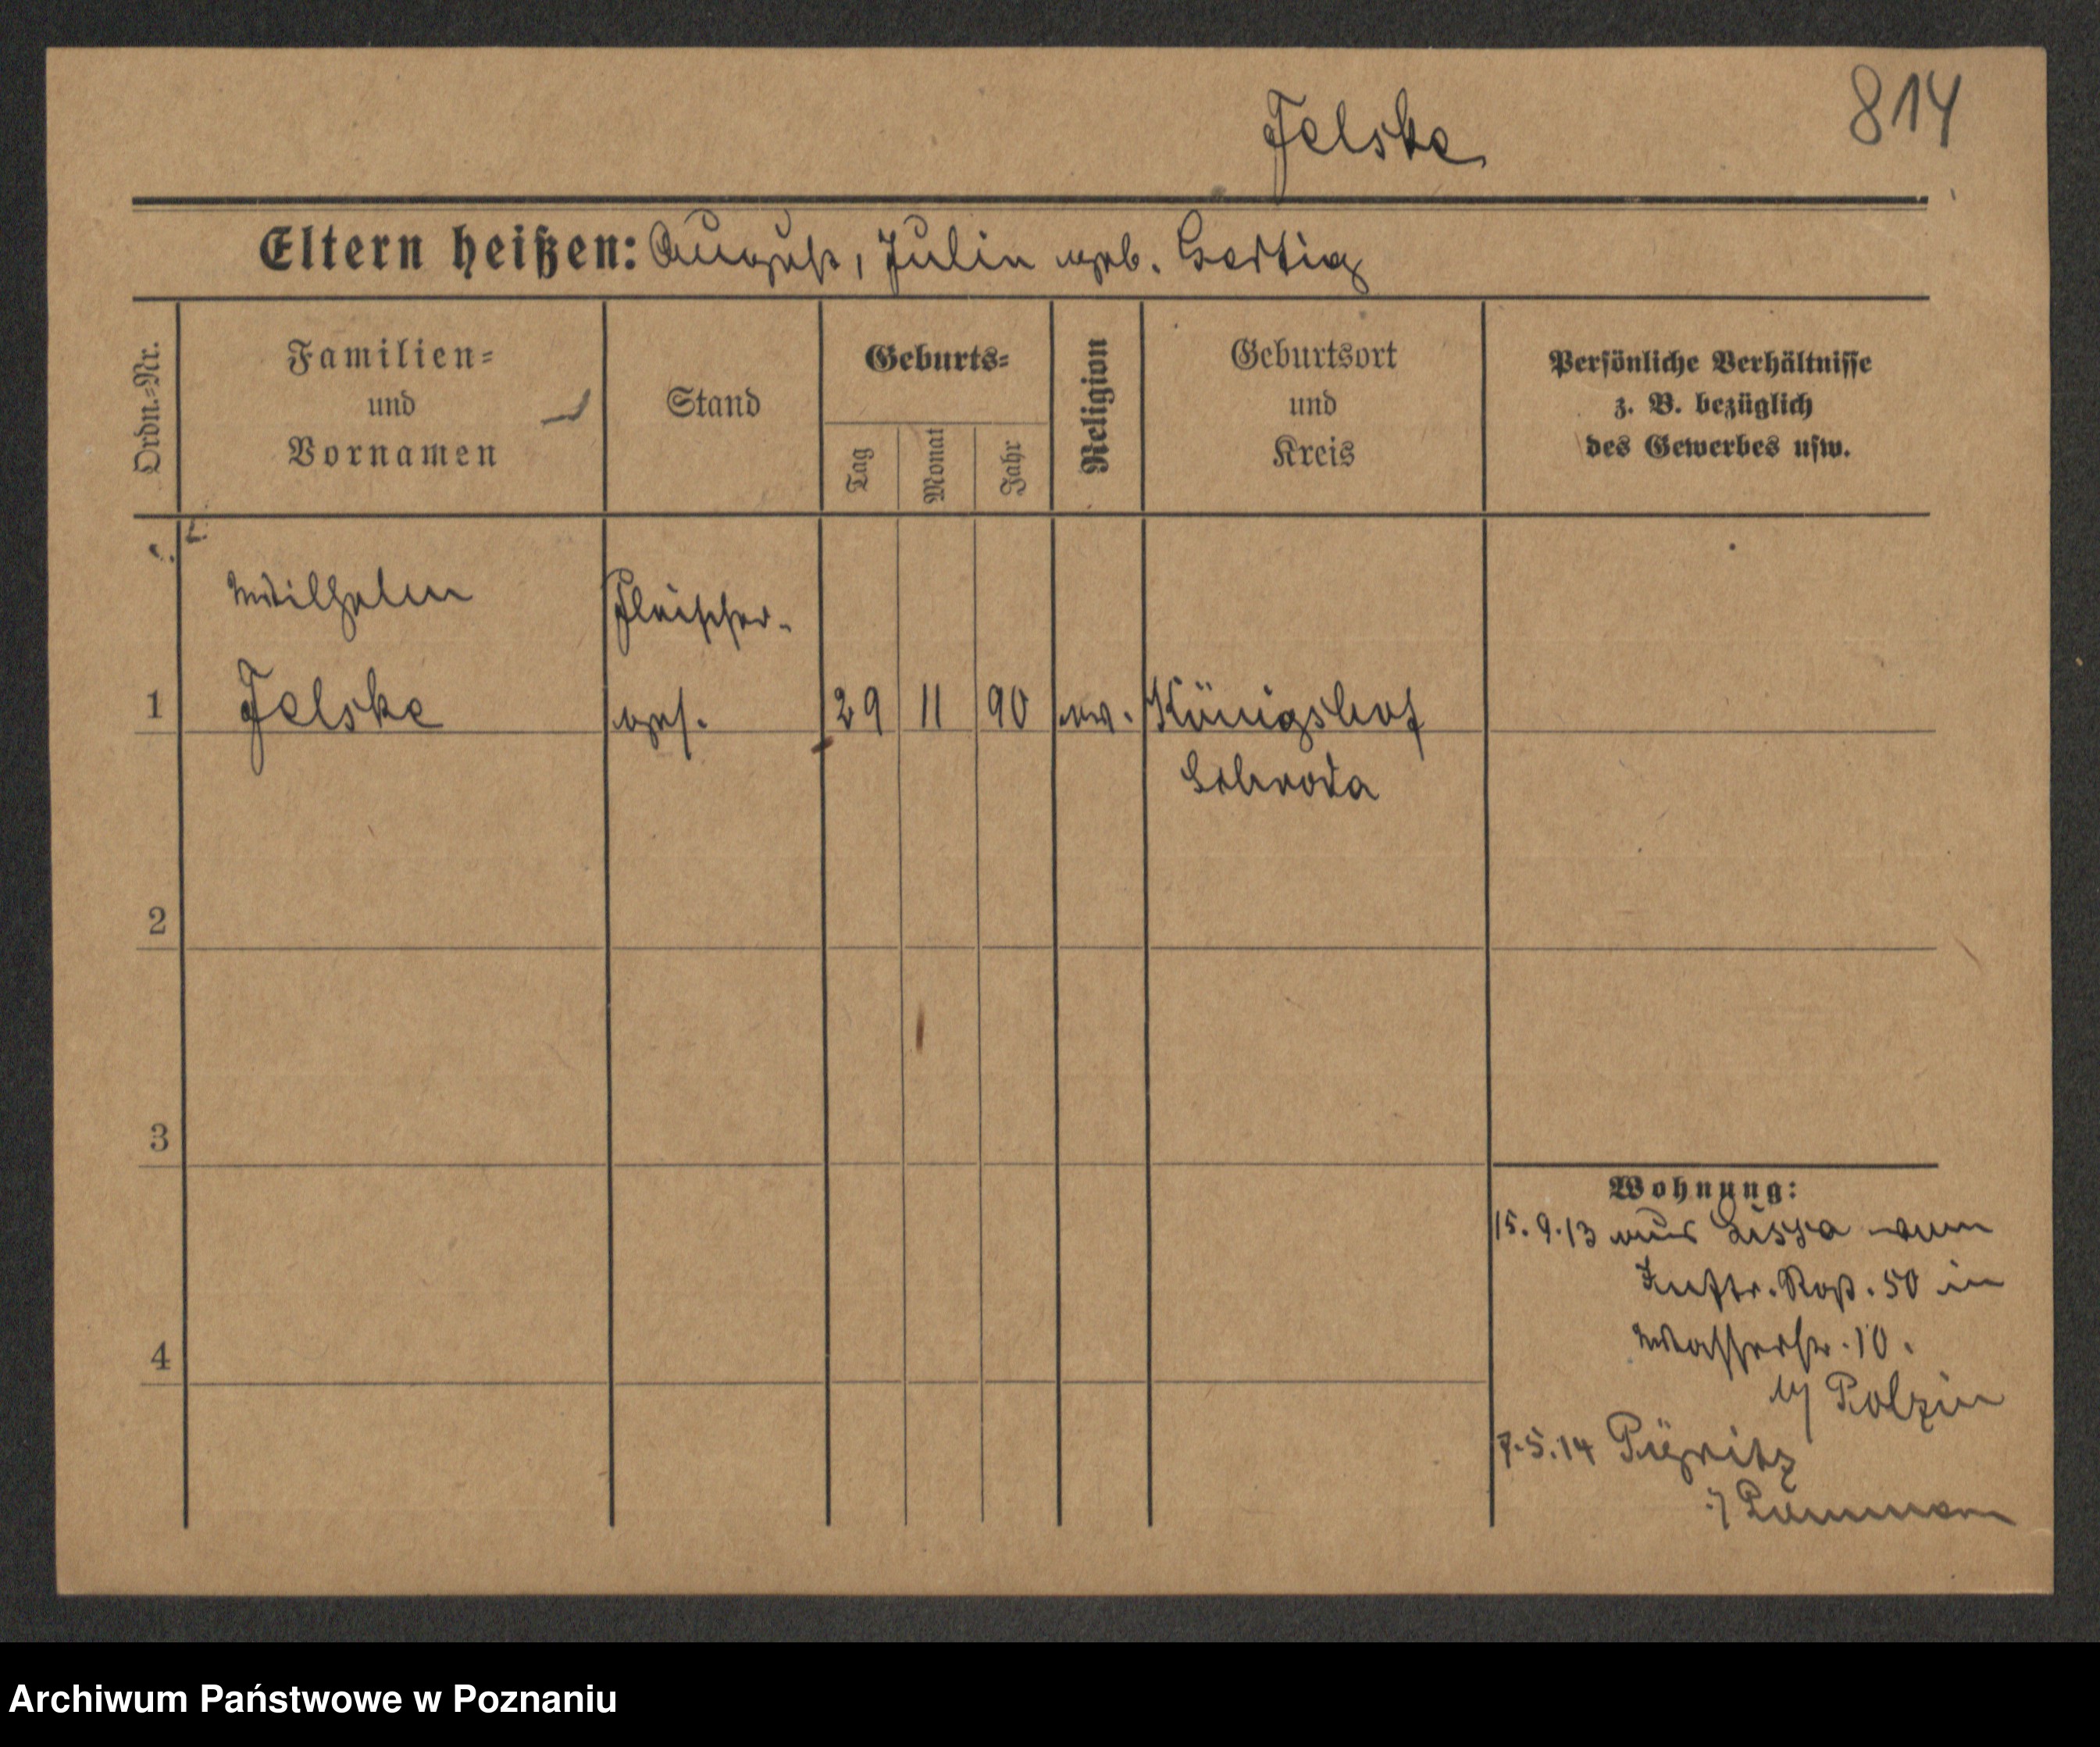 814
Jelske
Eltern heißen: August, Julie geb. Hertig
Ordn.-Nr.
Familien-
und
Vornamen
Stand
Geburts-
Tag
Monat
Jahr
Religion
Geburtsort
und
Kreis
Persönliche Verhältnisse
z. B. bezüglich
des Gewerbes usw.
Wilhelm
Fleischer-
1 Jelske ges. 29 11 90 ev. Königshof
Schroda
2
3
4
Wohnung:
15.9.13 aus Lissa vom
Inftr. Rgt. 50 in
Wasserstr. 10.
b/ Polzin
7.5.14 Pyritz
i/ Pommern
Archiwum Państwowe w Poznaniu